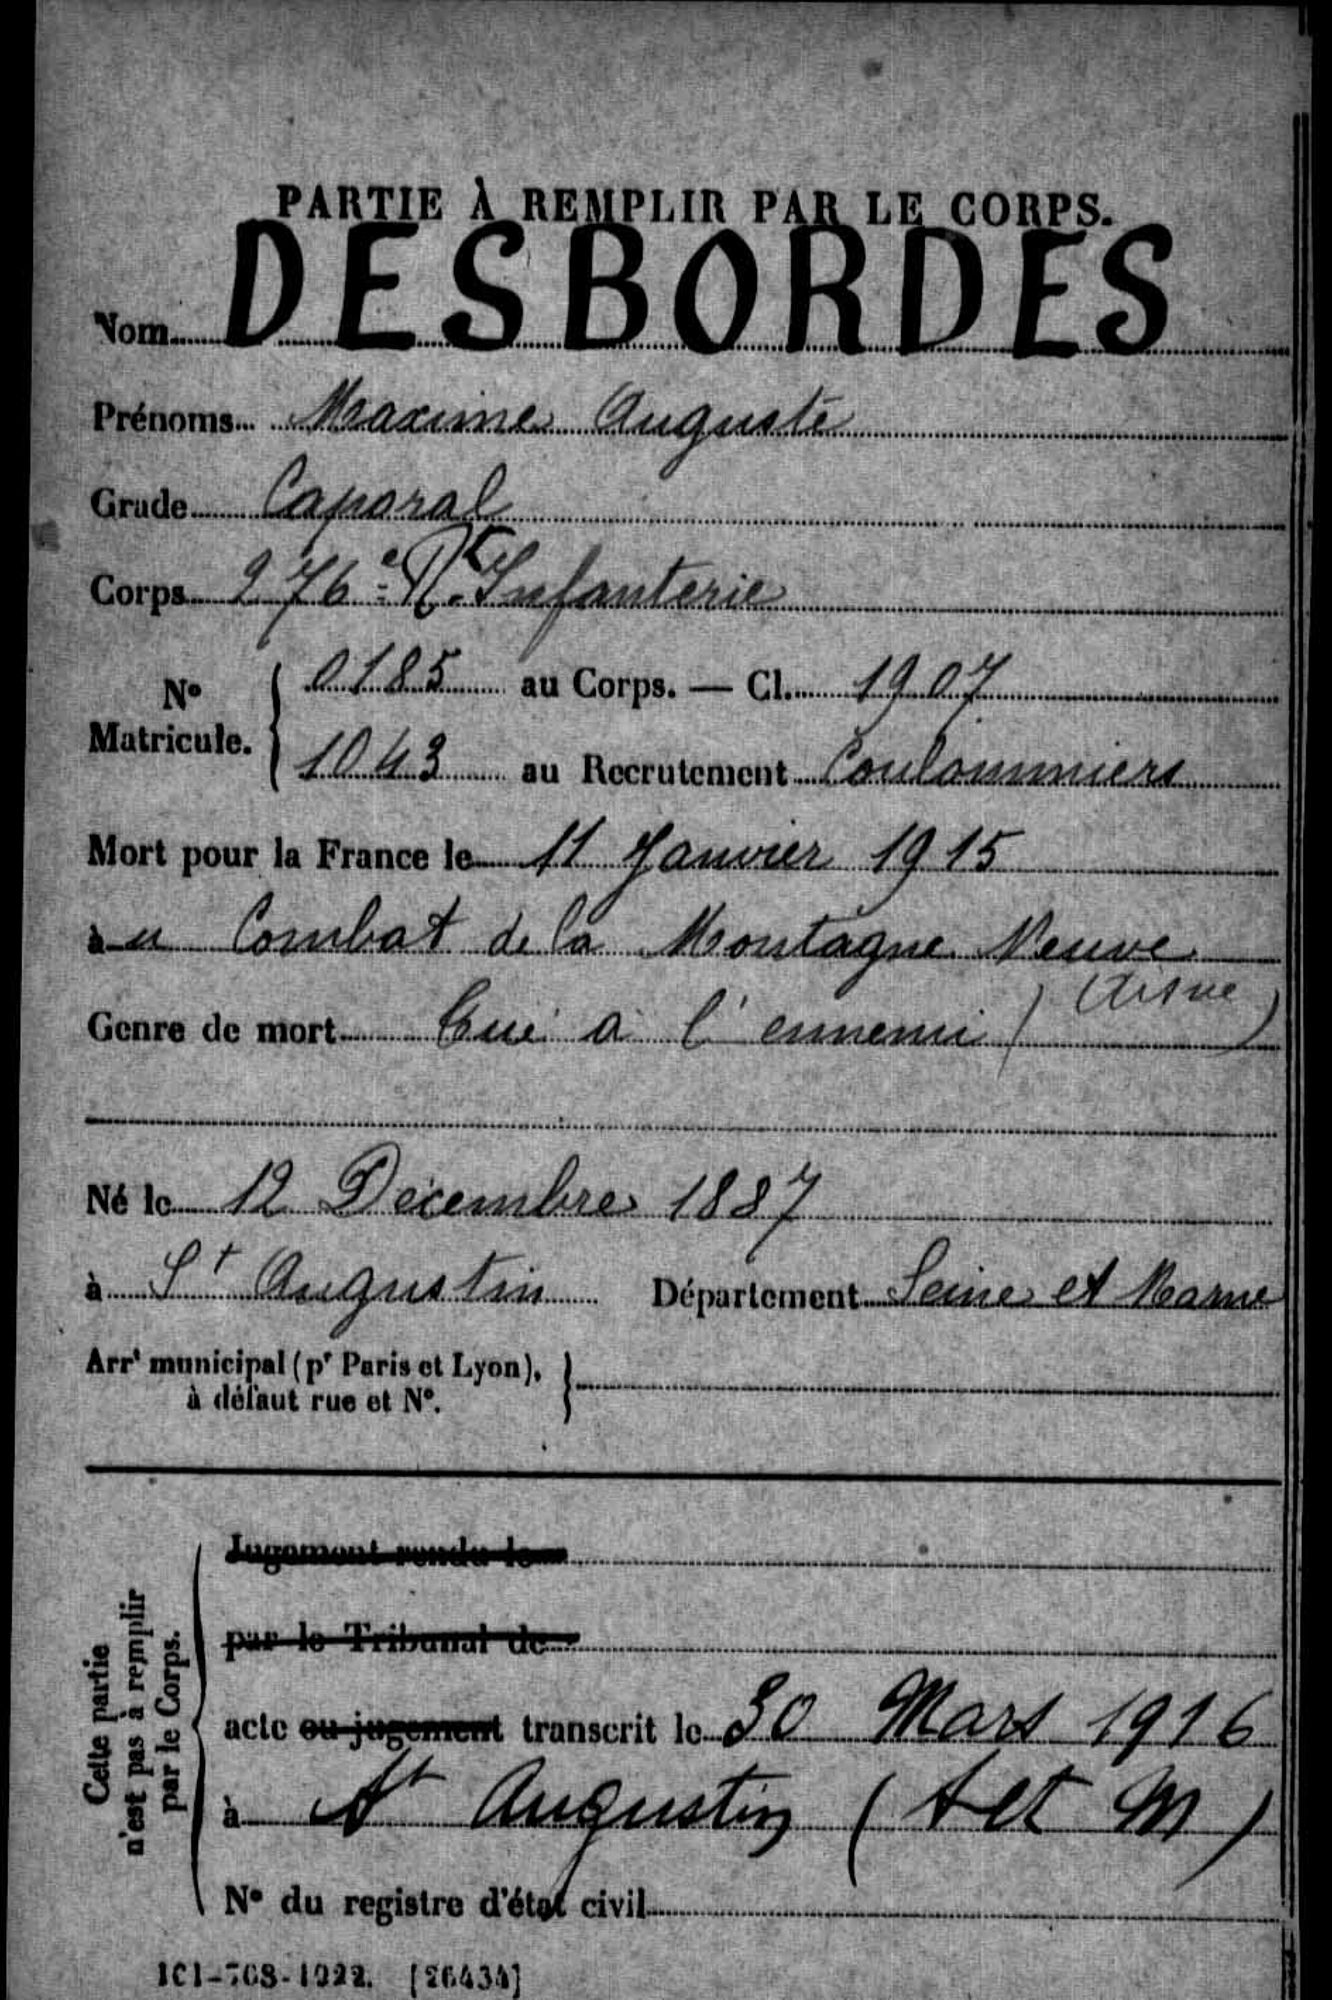 PARTIE À REMPLIR PAR LE CORPS.
Nom DESBORDES
Prénoms Maxime Auguste
Grade Caporal
Corps 276e Rt Infanterie
No Matricule. 0185 au Corps. — Cl. 1907
1043 au Recrutement Coulommiers
Mort pour la France le 11 Janvier 1915
àu Combat de la Montagne Neuve
(Aisne)
Genre de mort Tué à l'ennemi
Né le 12 Décembre 1887
à St Augustin Département Seine et Marne
Arrt municipal (pr Paris et Lyon),
à défaut rue et No.
Cette partie
n'est pas à remplir
par le Corps.
Jugement rendu le
par le Tribunal de
acte ou jugement transcrit le 30 Mars 1916
à St Augustin (S et M)
No du registre d'état civil
101-708-1922. [26434]